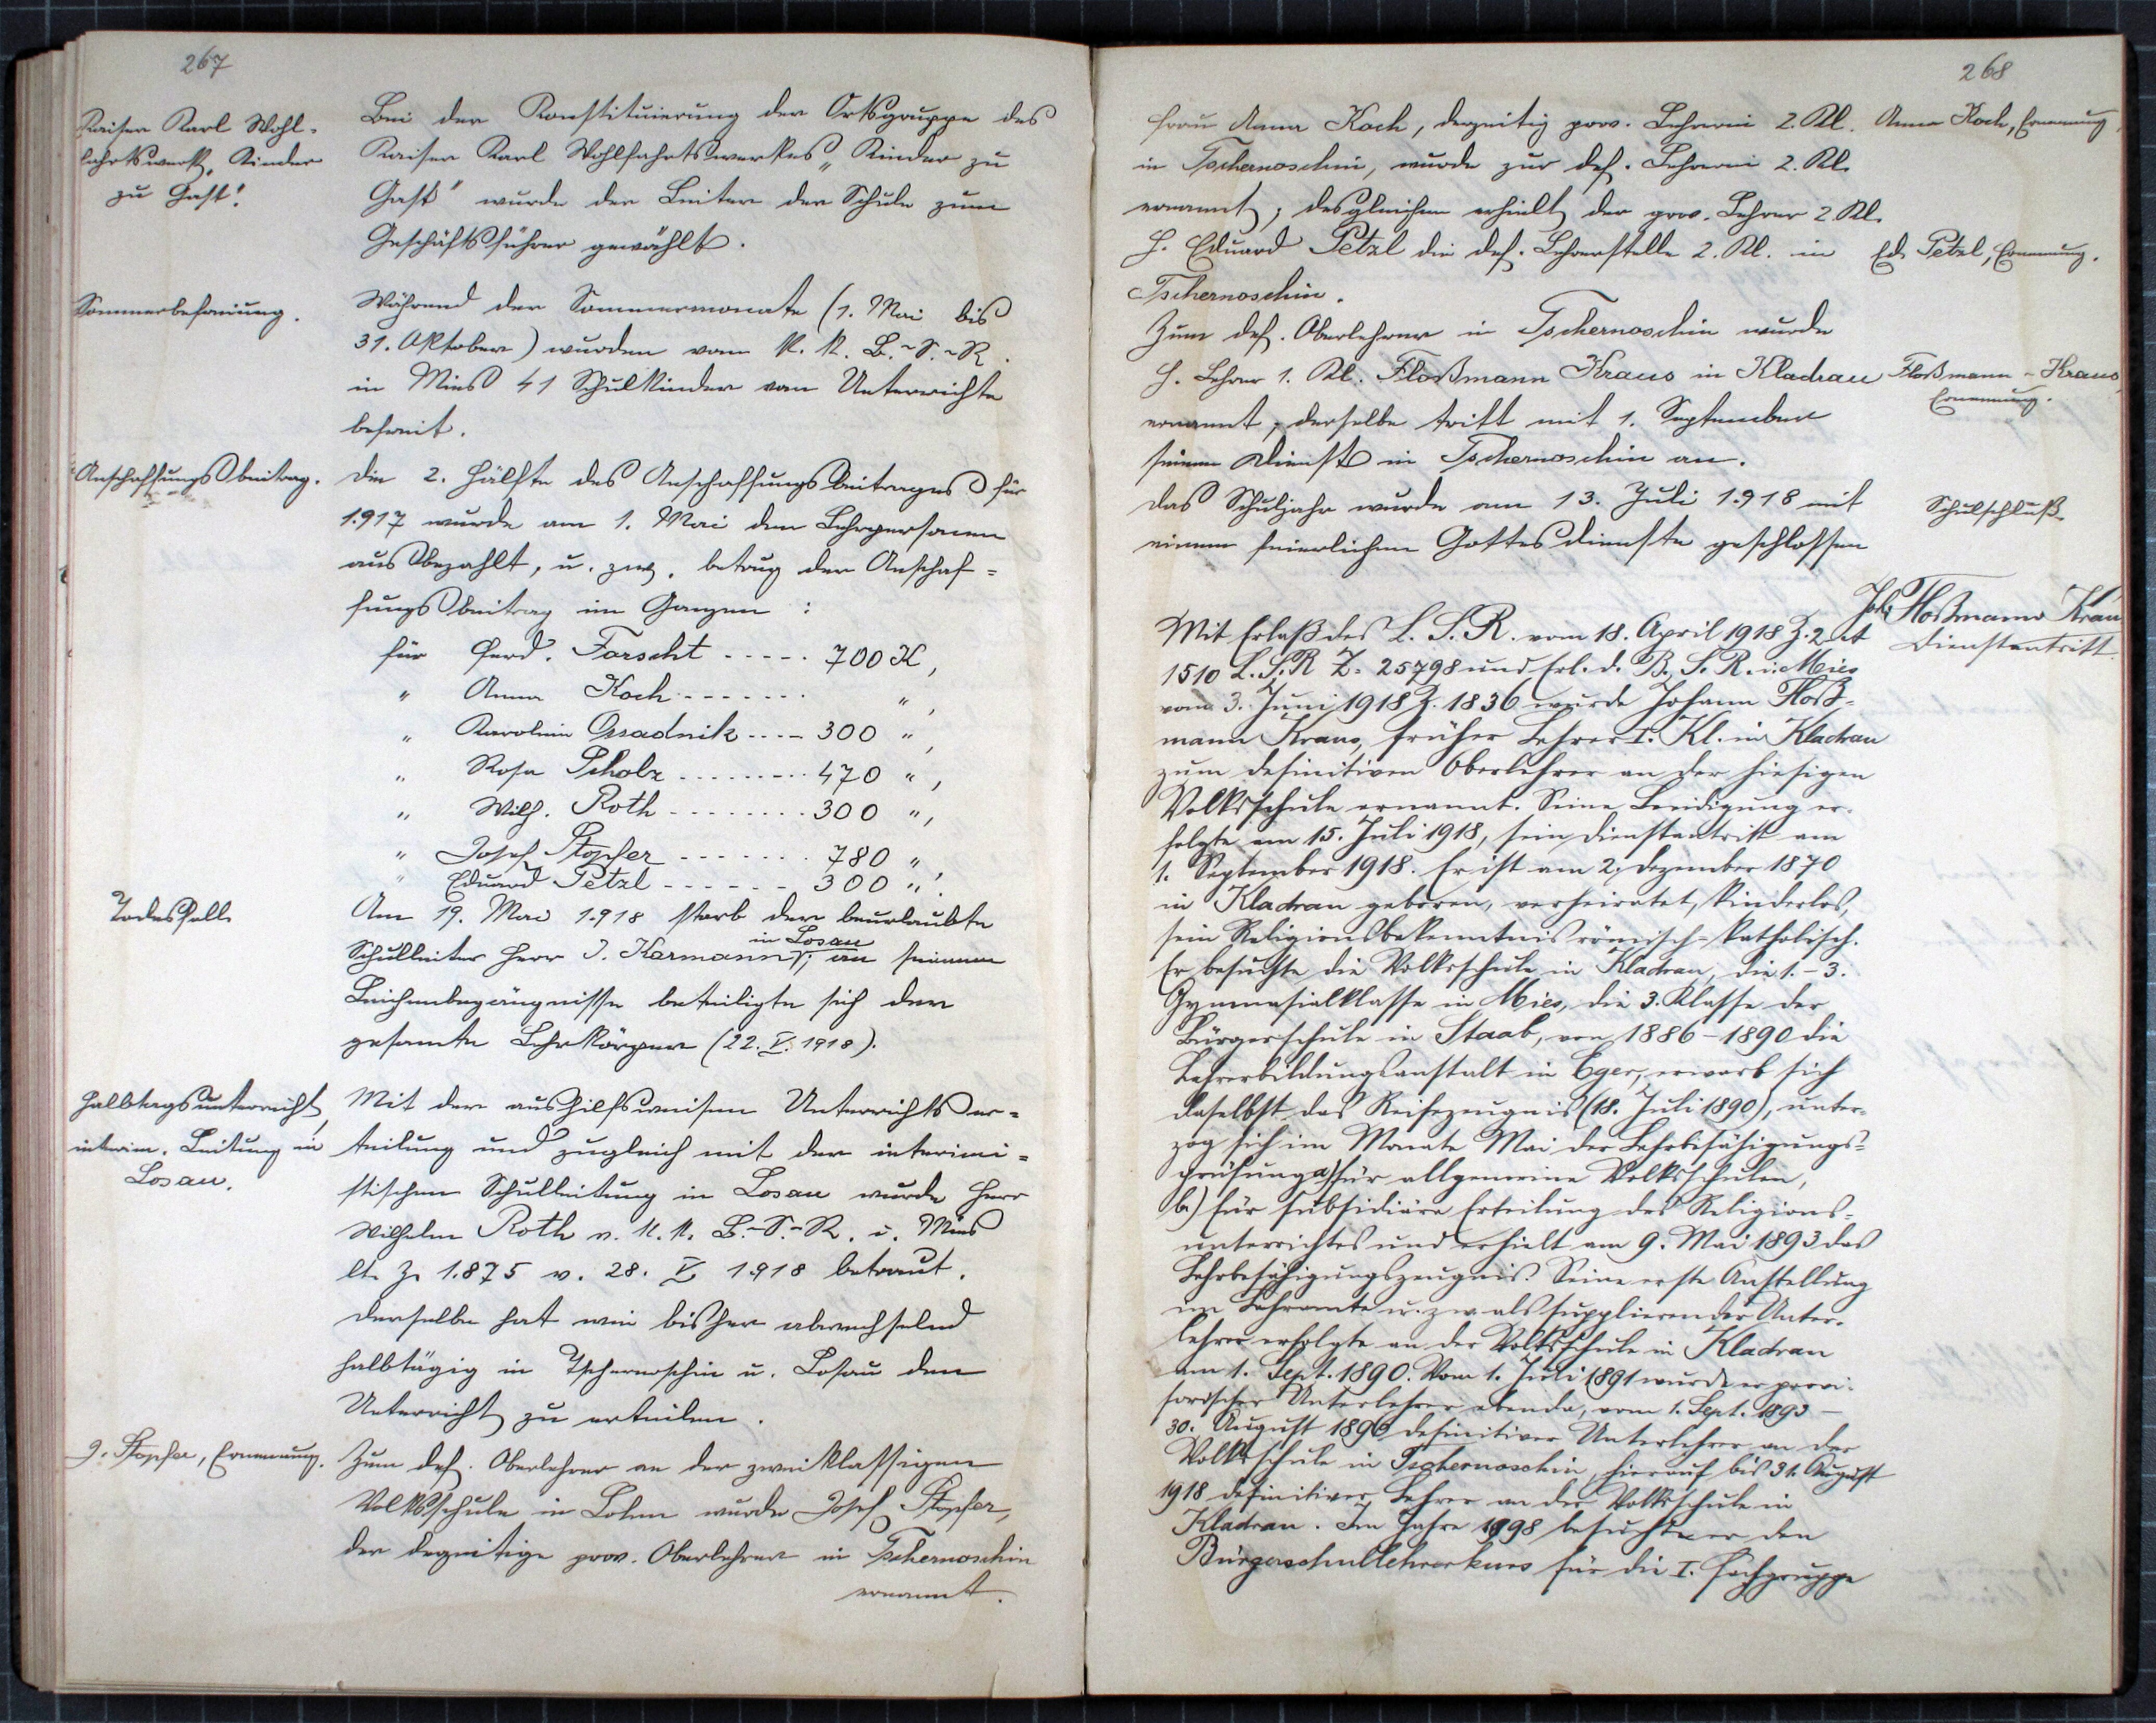 267
Kaiser Karl Wohl-
fahrtswerk „Kinder
zu Gast".
Bei der Konstituierung der Ortsgruppe des
Kaiser Karl Wohlfahrtswerkes „Kinder zu
Gast" wurde der Leiter der Schule zum
Geschäftsführer gewählt.
Sommerbefreiung.
Während der Sommermonate (1. Mai bis
31. Oktober) wurden vom k. k. B.-S.-R.
in Mies 41 Schulkinder vom Unterrichte
befreit.
Anschaffungsbeitrag.
Die 2. Hälfte des Anschaffungsbeitrages für
1917 wurde am 1. Mai den Lehrpersonen
ausbezahlt, u. zw. betrug der Anschaf-
fungsbeitrag im Ganzen :
für Ferd. Farscht ----- 700 K,
" Anna Koch ------- ",
" Karolina Osradnik ---- 300 ",
" Rosa Scholz --------- 470 ",
" Wilh. Roth -------- 300 ",
" Josef Stopfer ------- 780 "
" Eduard Petzl ------ 300 ".
Todesfall
Am 19. Mai 1918 starb der beurlaubte
Schulleiter Herr J. Karmann in Losau; an seinem
Leichenbegängnisse beteiligte sich der
gesamte Lehrkörper (22. V. 1918).
Halbtagsunterricht,
interim. Leitung in
Losau.
Mit der aushilfsweisen Unterrichtser-
teilung und zugleich mit der interimi-
stischen Schulleitung in Losau wurde Herr
Wilhelm Roth v. k. k. B.-S.-R. i. Mies
lt. Z. 1.875 v. 28. V. 1918 betraut.
Derselbe hat wie bisher abwechselnd
halbtägig in Tschernoschin u. Losau den
Unterricht zu erteilen.
J. Stopfer, Ernennung.
Zum def. Oberlehrer an der zweiklassigen
Volksschule in Lohm wurde Josef Stopfer,
der derzeitige prov. Oberlehrer in Tschernoschin
ernannt.
268
Frau Anna Koch, derzeitig prov. Lehrerin 2. Kl.
Anna Koch, Ernennung,
in Tschernoschin, wurde zur def. Lehrerin 2. Kl.
ernannt; desgleichen erhielt der prov. Lehrer 2. Kl.
H. Eduard Petzl die def. Lehrerstelle 2. Kl. in
Ed. Petzl, Ernennung.
Tschernoschin.
Zum def. Oberlehrer in Tschernoschin wurde
H. Lehrer 1. Kl. Floßmann Kraus in Kladrau
Floßmann - Kraus,
Ernennung.
ernannt; derselbe tritt mit 1. September
seinen Dienst in Tschernoschin an.
Das Schuljahr wurde am 13. Juli 1918 mit
Schulschluß.
einem feierlichen Gottesdienste geschlossen
Joh. Floßmann Kraus
Dienstantritt.
Mit Erlaß des L. S. R. vom 18. April 1918 Z. 2 A
1510 L. S. R Z. 25798 und Erl. d. B. S. R. i. Mies
vom 3. Juni 1918 Z. 1836 wurde Johann Floß-
mann Kraus, früher Lehrer I. Kl. in Kladrau
zum definitiven Oberlehrer an der hiesigen
Volksschule ernannt. Seine Beeidigung er-
folgte am 15. Juli 1918, sein Dienstantritt am
1. September 1918. Er ist am 2. Dezember 1870
in Kladrau geboren, verheiratet, kinderlos,
sein Religionsbekenntnis römisch-katholisch.
Er besuchte die Volksschule in Kladrau, die 1.-3.
Gymnasialklasse in Mies, die 3. Klasse der
Bürgerschule in Staab, von 1886-1890 die
Lehrerbildungsanstalt in Eger, erwarb sich
daselbst das Reifezeugnis (18. Juli 1890), unter-
zog sich im Monate Mai der Lehrbefähigungs-
prüfung a) für allgemeine Volksschulen,
b.) für subsidiäre Erteilung des Religions-
unterrichtes und erhielt am 9. Mai 1893 das
Lehrbefähigungszeugnis. Seine erste Anstellung
im Lehramte u. zw. als supplierender Unter-
lehrer erfolgte an der Volksschule in Kladrau
am 1. Sept. 1890. Vom 1. Juli 1891 wurde er provi-
sorischer Unterlehrer ebenda, vom 1. Sept. 1893 -
30. August 1896 definitiver Unterlehrer an der
Volksschule in Tschernoschin, hierauf bis 31. August
1918 definitiver Lehrer an der Volksschule in
Kladrau. Im Jahre 1898 besuchte er den
Bürgerschullehrerkurs für die I. Fachgruppe